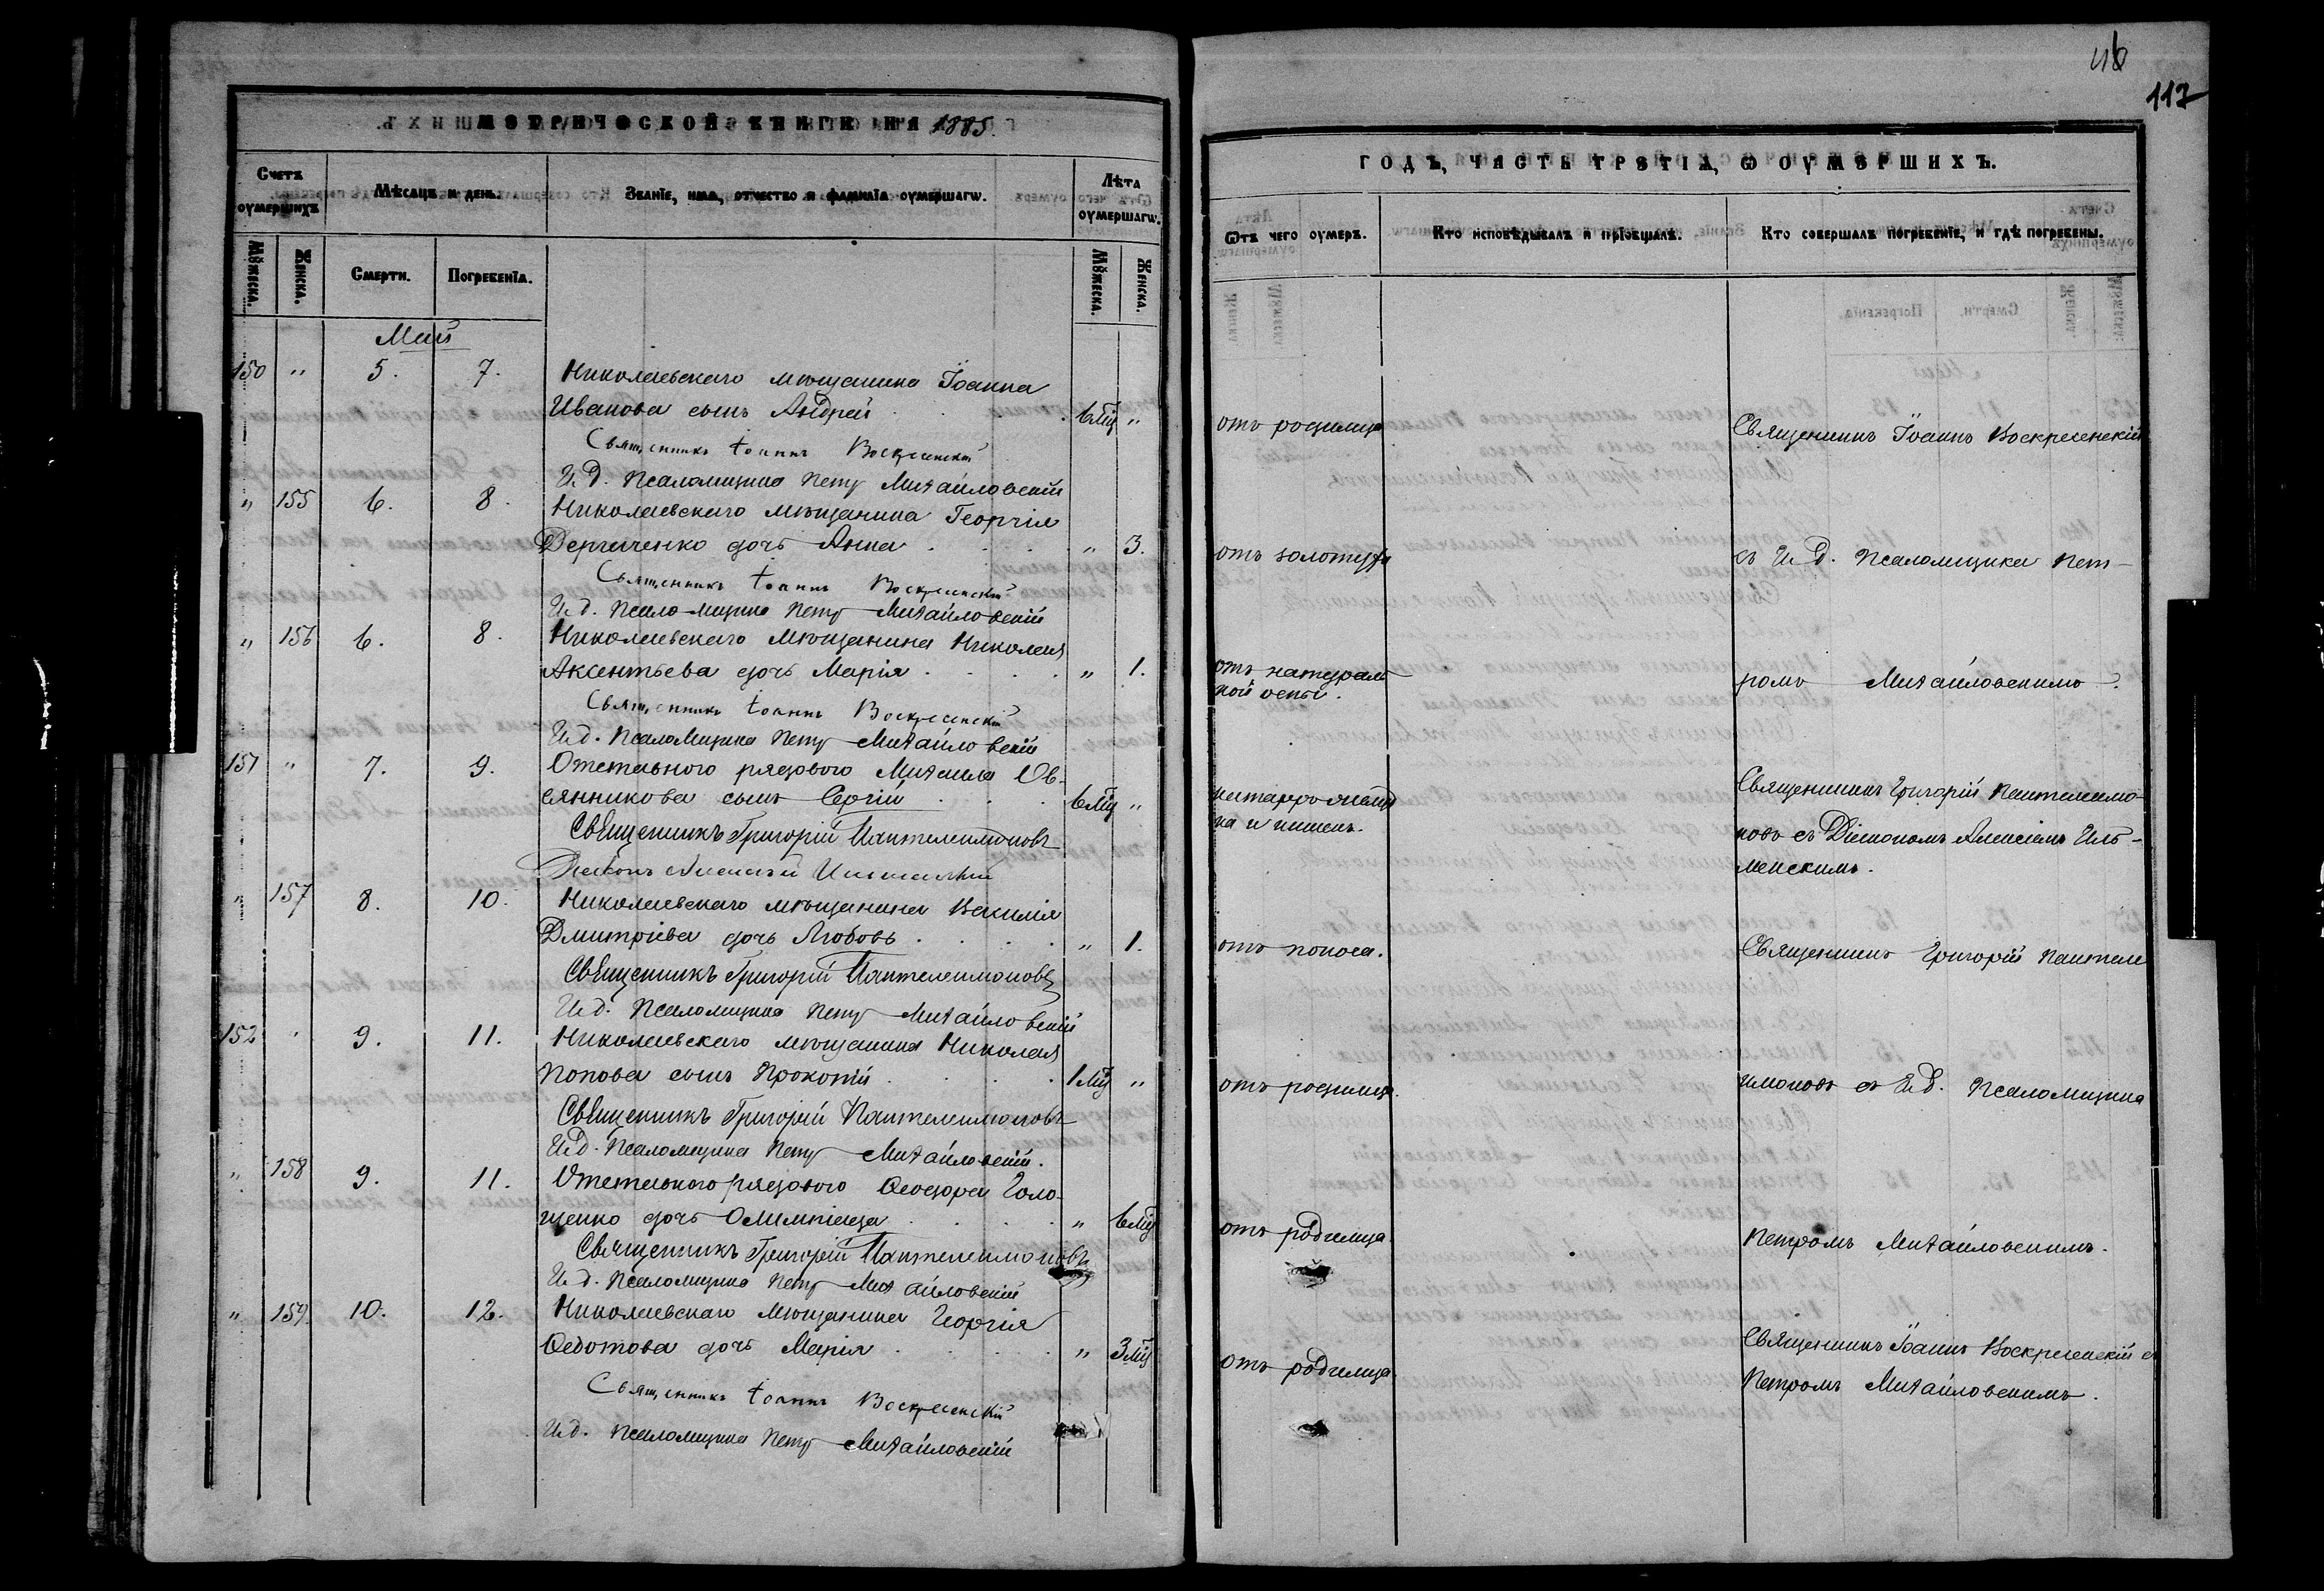 МЕТРИЧЕСКОЙ КНИГИ НА 1885.
Счетъ оумершихъ
Мѣсяцъ и день.
Званїе, имя, отчество и фамилїа оумершагѡ.
Лѣта оумершагѡ.
Мꙋжеска.
Женска.
Смерти.
Погребенїа.
Мꙋжеска.
Женска.
Май
150 " 5. 7. Николаевскаго мѣщанина Іоанна
Иванова сынъ Андрей . . . 6 мц "
Священникъ Іоаннъ Воскресенскій
И.д. Псаломщика Петръ Михайловскій
" 155 6. 8. Николаевскаго мѣщанина Георгія
Дергаченко дочь Анна . . . " 3.
Священникъ Іоаннъ Воскресенскій
И.д. Псаломщика Петръ Михайловскій
" 156 6. 8. Николаевскаго мѣщанина Николая
Аксентьева дочь Марія . . . . " 1.
Священникъ Іоаннъ Воскресенскій
И.д. Псаломщика Петръ Михайловскій
151 " 7. 9. Отставного рядового Михаила Ов-
сянникова сынъ Сергій . . . 6 мц "
Священникъ Григорій Пантелеимоновъ
Діаконъ Алексѣй
" 157 8. 10. Николаевскаго мѣщанина Василія
Дмитріева дочь Любовь . . . . " 1.
Священникъ Григорій Пантелеимоновъ
И.д. Псаломщика Петръ Михайловскій
152 " 9. 11. Николаевскаго мѣщанина Николая
Попова сынъ Прокопій . . . . 1 мц "
Священникъ Григорій Пантелеимоновъ
И.д. Псаломщика Петръ Михайловскій.
" 158 9. 11. Отставного рядового Ѳеодора Голо-
щенко дочь Олимпіада . . . . " 6 мц
Священникъ Григорій Пантелеимоновъ
И.д. Псаломщика Петръ Михайловскій
" 159. 10. 12. Николаевскаго Мѣщанина Георгія
Ѳедотова дочь Марія . . . . . " 3 мц
Священникъ Іоаннъ Воскресенскій
И.д. Псаломщика Петръ Михайловскій
117
ГОДЪ, ЧАСТЬ ТРЕТІА, Ѡ ОУМЕРШИХЪ.
Ѿтъ чего оумеръ.
Кто исповѣдывалъ и прїобщалъ.
Кто совершалъ погребенїе, и гдѣ погребены.
отъ родимца Священникъ Іоаннъ Воскресенскій
отъ золотухи съ И.д. Псаломщика Пет-
отъ натураль
ной оспы. ромъ Михайловскимъ.
катарръ желуд
ка и кишекъ. Священникъ Григорій Пантелеимо-
новъ съ Діакономъ Алексіемъ Иль-
менскимъ.
отъ поноса. Священникъ Григорій Пантеле
отъ родимца. имоновъ съ И.д. Псаломщика
отъ родимца Петромъ Михайловскимъ.
отъ родимца Священникъ Іоаннъ Воскресенскій съ
Петромъ Михайловскимъ.